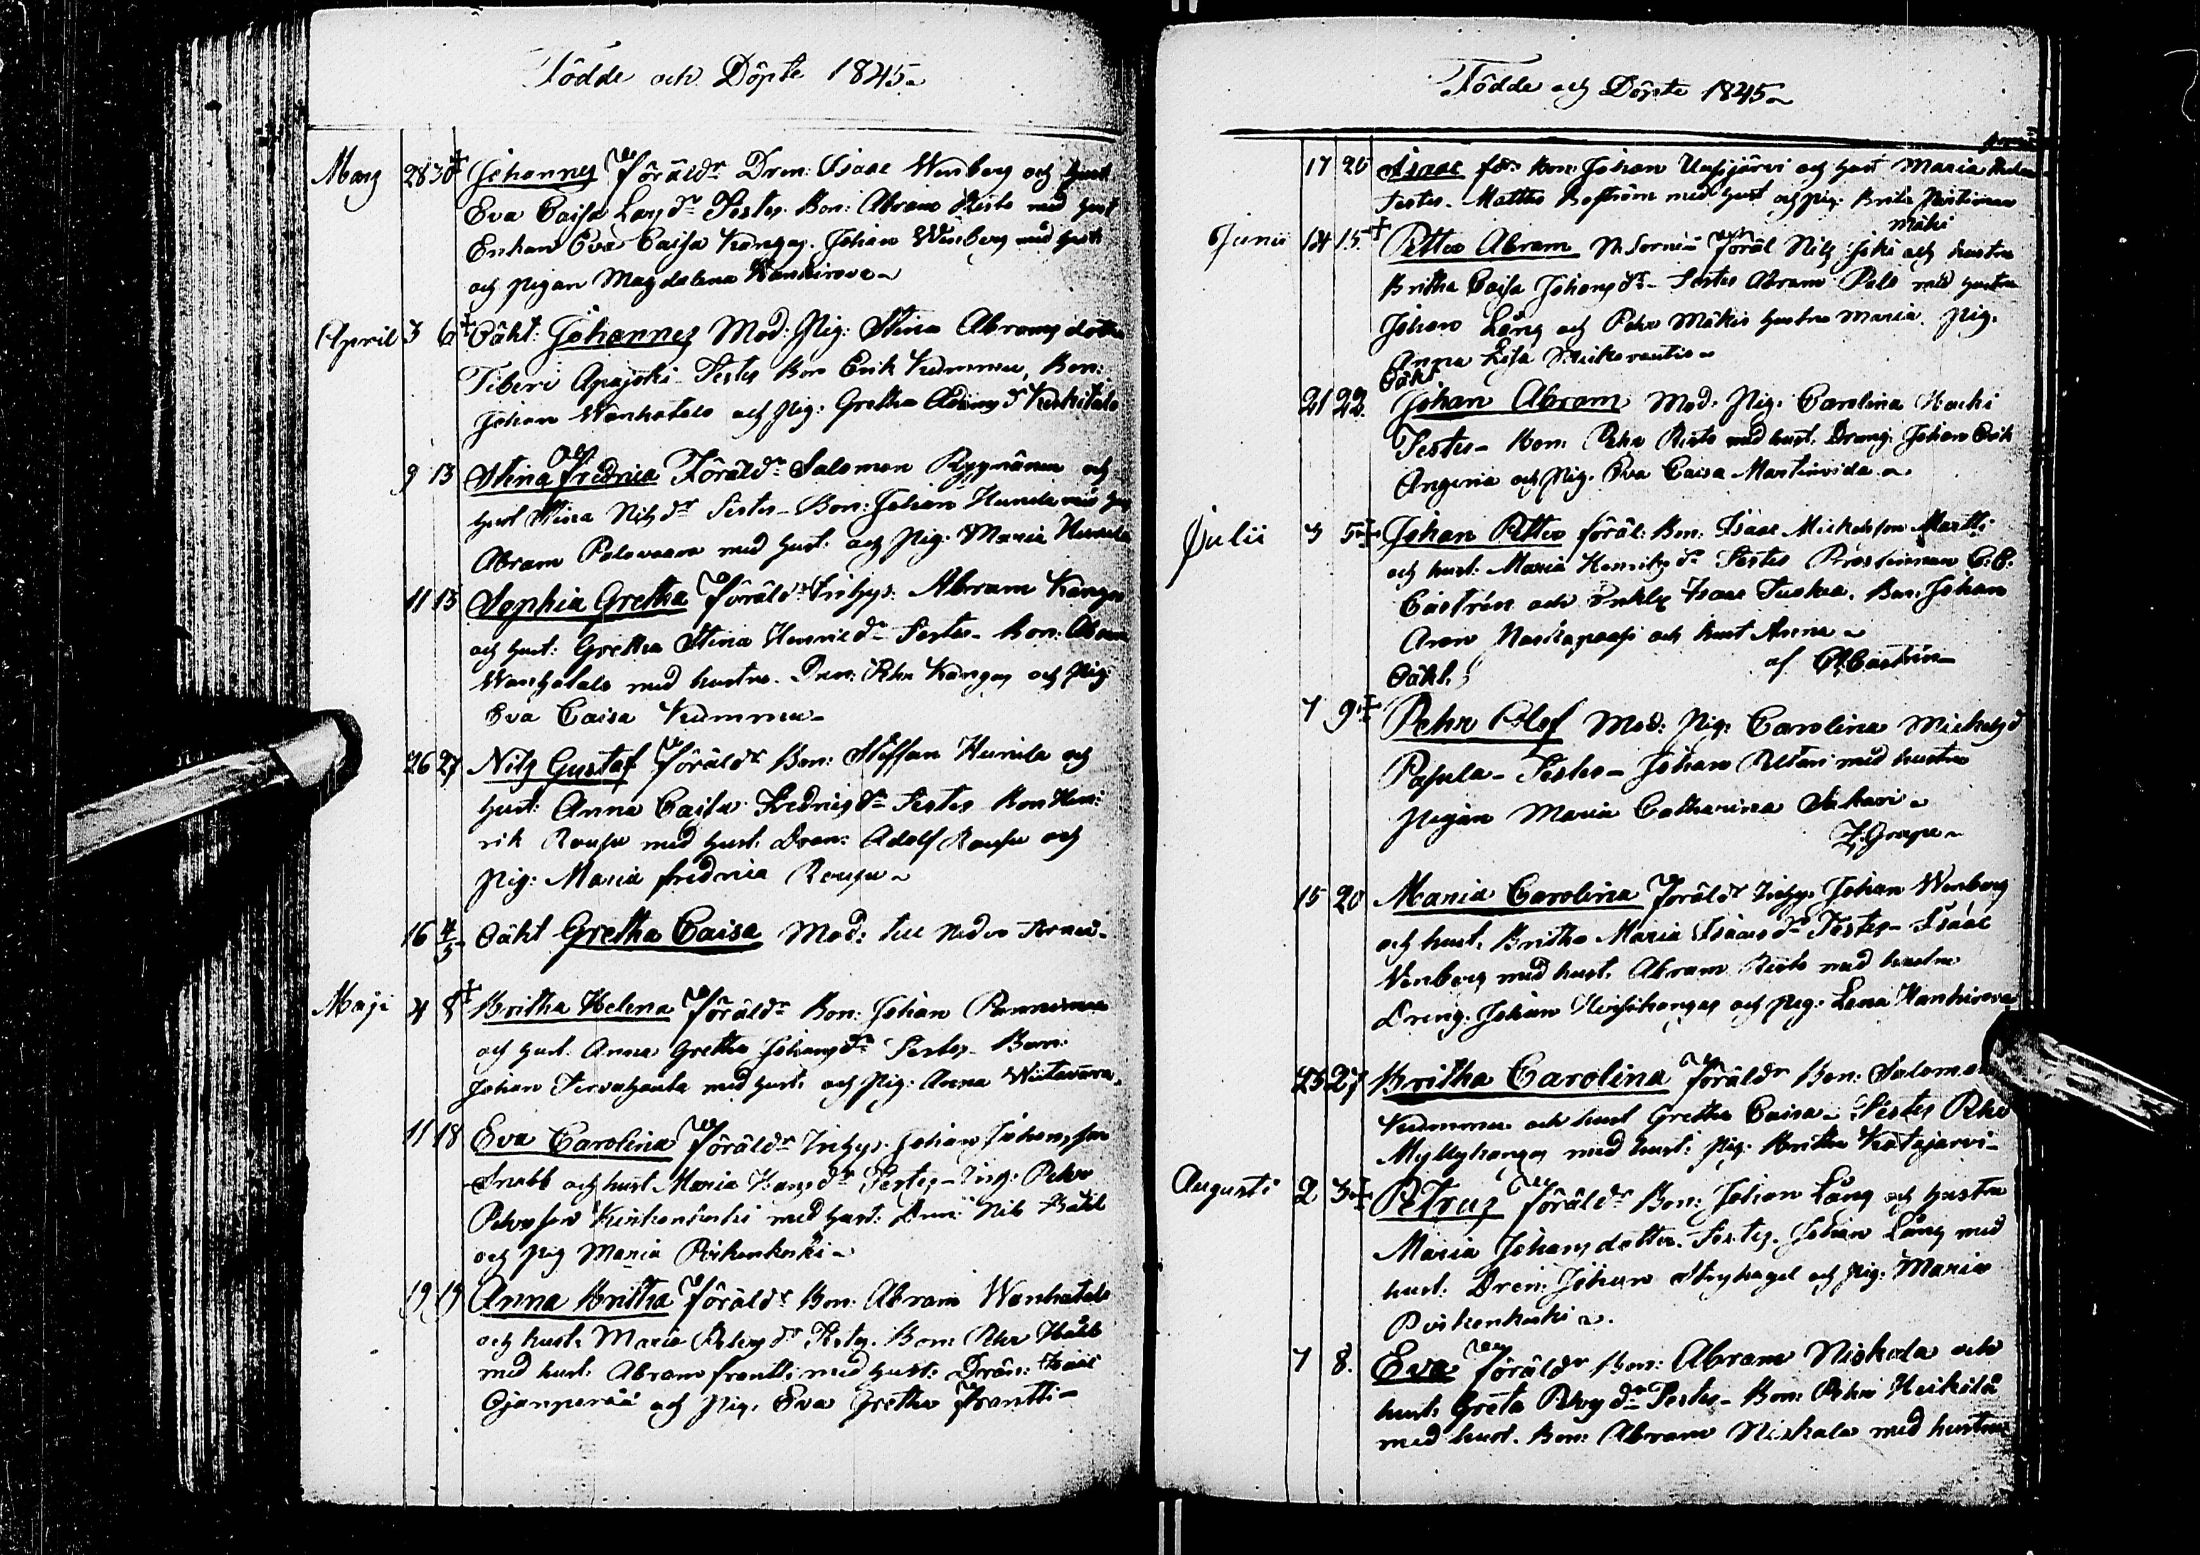 Födde och Döpte 1845
Mars 28 30 Johannes Föräldr Dren: Isaac Wenberg och hust
Eva Caisa Larsdr Testes. Bon: Abram Risto med hust
Enkan Eva Caisa Kangas. Johan Wenberg med hust
och pigan Magdalena
April 3 6 Oäkt: Johannes Mod: Pig: Stina Abramsdotter
Tiberi Apajoki Testes Bon Erik Kummu, Bon:
Johan Wanhatalo och Pig: Gretha Keskitalo
9 13 Stina Fredrica Föräldr Salomon och
hust Stina Nilsdr Testes Bon: Johan Hurula med hust
Abram Palovaara med hust: och Pig: Maria Hurula
11 13 Sophia Gretha Föräldr Inhys: Abram Kangas
och hust: Gretha Stina Henricdr Testes Bon: Abram
Wanhatalo med hustru. Dren: Pehr Kangas och Pig:
Eva Caisa Kummu
26 27 Nils Gustaf Föräldr Bon: Steffan Hurula och
hust: Anna Caisa Testes Bon Hen:
rik Roufu med hust. Dren: Adolf Roufu och
Pig: Maria Fredrica Roufu
16 4/5 Oäkt Gretha Caisa Mod: till Neder
Maji 4 8 Britha Helena Föräldr Bon: Johan
och hust. Anna Gretha Johansdr Testes Bon:
Johan med hust: och Pig: Anna Wiitavaara
11 18 Eva Carolina Föräldr Inhys: Johan Johansson
Snabb och hust. Maria Hansdr Testes Inh: Pehr
Pehrsson med hust: Dren: Nils
och Pig Maria Poikenkoski
19 19 Anna Britha Föräldr Bon: Abram Wanhatalo
och hust: Maria Testes. Bon: Pehr
med hust: Abram Frantti med hust: Drän: Isaac
Ojanperää och Pig: Eva Gretha Frantti
Födde och Döpte 1845
17 26 Isaac för: Bon: Johan och hust Maria
Testes. Matths Boström med hust och Pig: Brita
Mäki
Junii 14 15 Petter Abram Föräl Nils Joki och hustru
Britha Caisa Johansdr Testes Abram Palo med hustru
Johan Lång och Pehr Mäkis hustru Maria. Pig.
Anna Lisa
Oäkt.
21 22 Johan Abram Mod: Pig: Carolina
Testes Bon: Pehr Risto med hust. Dräng: Johan Erik
Angeria och Pig. Eva Caisa Martinvida
Julii 3 5 Johan Petter Föräl: Bon: Isaac Michelsson Martti
och hust: Maria Henriksdr Testes Prostinnan
Castrén och Isaac Bon: Johan
Aron och hust Anna
af Castrén
Oäkt.
7 9 Pehr Olof Mod: Pig: Carolina Michelsd
Pasula Testes Johan med hustru
Pigan Maria Catharina
Z. Grape
15 20 Maria Carolina Föräldr Inhys: Johan Wenberg
och hust: Britha Maria Isaacsdr Testes Isaac
Wenberg med hust. Abram Risto med hustru
Dreng: Johan och Pig: Lena
23 27 Britha Carolina Föräldr Bon: Salomon
Kummu och hust Gretha Caisa Testes Pehr
Myllykangas med hust: Pig: Britha Kätäjärvi
Augusti 2 3 Petrus Föräldr Bon: Johan Lång och hustru
Maria Johansdotter. Testes. Johan Lång med
hust: Dren: Johan Stryhagel och Pig: Maria
Poikenkoski
7 8. Eva Föräldr Bon: Abram Niskala och
hust: Greta Testes Bon: Pehr Heikilä
med hust. Bon: Abram Niskala med hustru